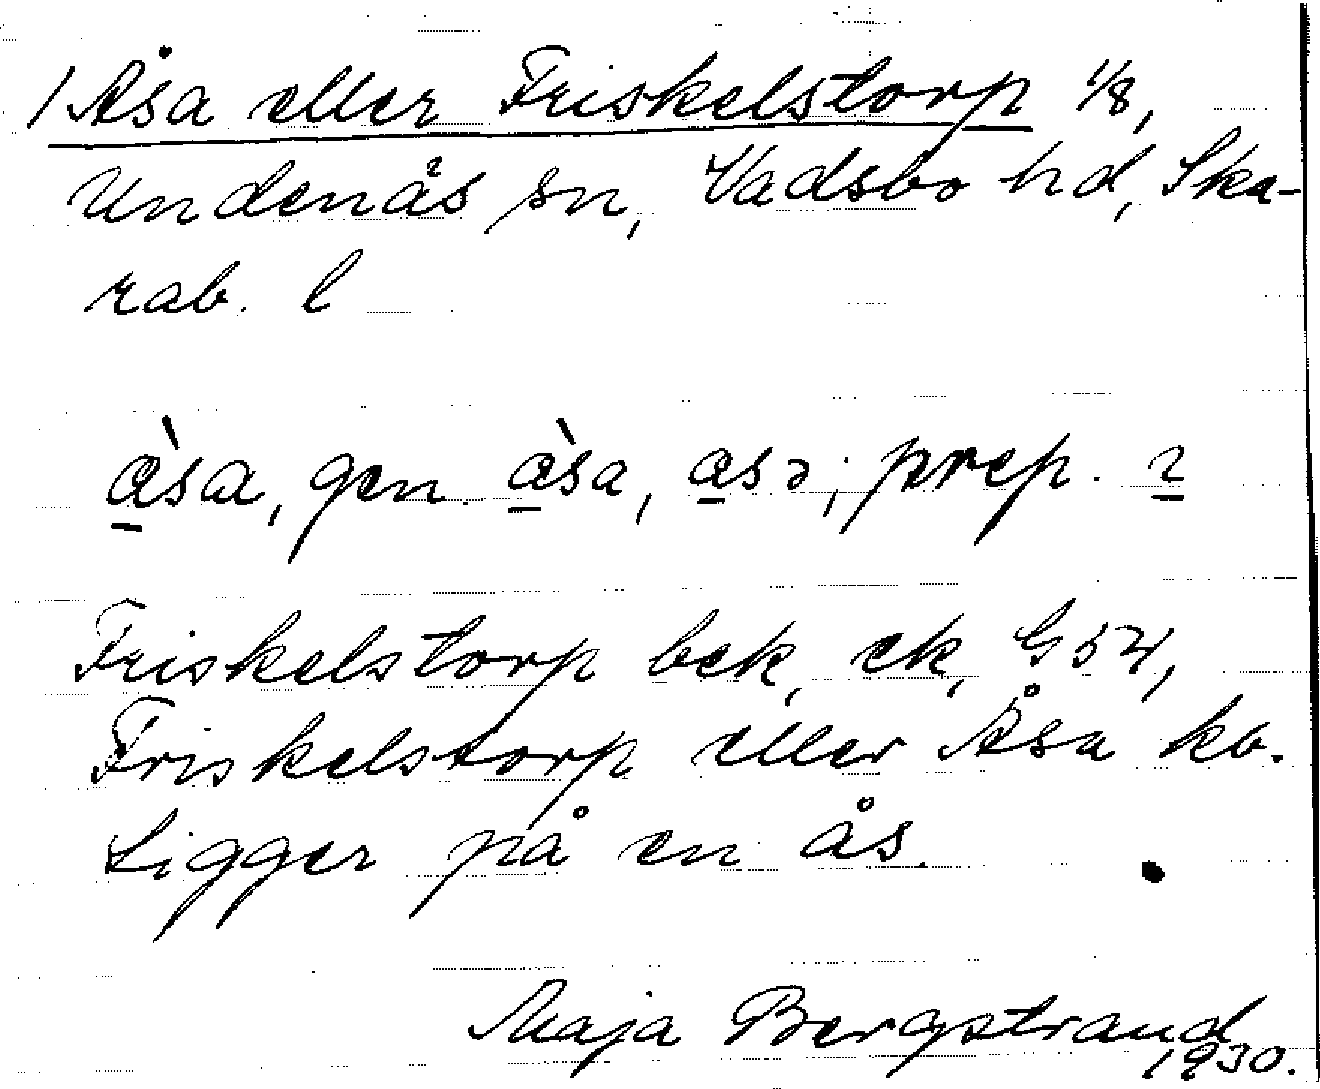 / Åsa eller Friskelstorp 1/8,
Undenäs sn, Vadsbo hd, Ska-
rab. l
àsa, gen. àsa, asə; prep. ı
Friskelstorp bek, ek, G 54,
Friskelstorp eller Åsa kb.
Ligger på en ås.
Maja Bergstrand
1930.